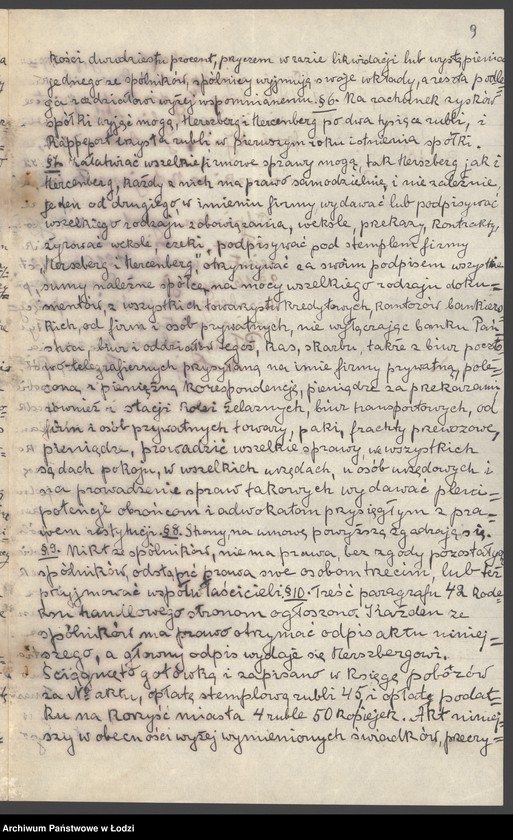 9
kości dwudziestu procent, przyczem w razie likwidacji lub wystąpienia
jednego ze spólników, spólnicy wyjmują swoje wkłady, a reszta podle=
ga zadziałowi wyżej wspomnianemu. §6. Na rachunek zysków
spółki wyjąć mogą, Herszberg i Hercenberg po dwa tysiące rubli, i
Rappeport trzysta rubli w pierwszym roku istnienia spółki.
§7. Załatwiać wszelkie firmowe sprawy mogą, tak Herszberg jak i
Hercenberg, każdy z nich ma prawo samodzielnie, i nie zależnie,
jeden od drugiego, w imieniu firmy, wydawać lub podpisywać
wszelkiego rodzaju zobowiązania, weksle, przekazy, kontrakty,
żyrować weksle, czeki, podpisywać pod stemplem firmy
„Herszberg i Hercenberg", otrzymywać za swoim podpisem wszystkie
sumy należne spółce, na mocy wszelkiego rodzaju doku=
mentów, z wszystkich towarzystw kredytowych, kantorów bankiers=
kich, od firm i osób prywatnych, nie wyłączając banku Pań=
stwa, biur i oddziałów tegoż, kas, skarbu, także z biur poczto=
wo-telegraficznych przysyłaną na imie firmy prywatną, pole=
coną, z pieniężną korespondencję, pieniądze za przekazami
również z stacji kolei żelaznych, biur transportowych, od
firm i osób prywatnych towary, paki, frachty przewozowe,
pieniądze, prowadzić wszelkie sprawy, we wszystkich
sądach pokoju, w wszelkich urzędach, u osób urzędowych i
na prowadzenie spraw takowych wydawać pleni=
potencje obrońcom i adwokatom przysięgłym z pra=
wem restytucji. §8. Strony, na umowę powyższą zgadzają się.
§9. Nikt z spólników, nie ma prawa, bez zgody pozostałych
spólników, odstąpić prawa swe osobom trzecim, lub też
przyjmować współwłaścicieli. §10. Treść paragrafu 42 Kode=
ksu handlowego stronom ogłoszono. I każden ze
spólników ma prawo otrzymać odpis aktu niniej=
szego, a główny odpis wydaje się Herszbergowi.
Ściągnięto gotówką i zapisano w Księgę poborów
za № aktu, opłatę stemplową rubli 45 i opłatę podat=
ku na korzyść miasta 4 ruble 50 kopiejek. Akt niniej=
szy w obecności wyżej wymienionych świadków, przeczy=
Archiwum Państwowe w Łodzi